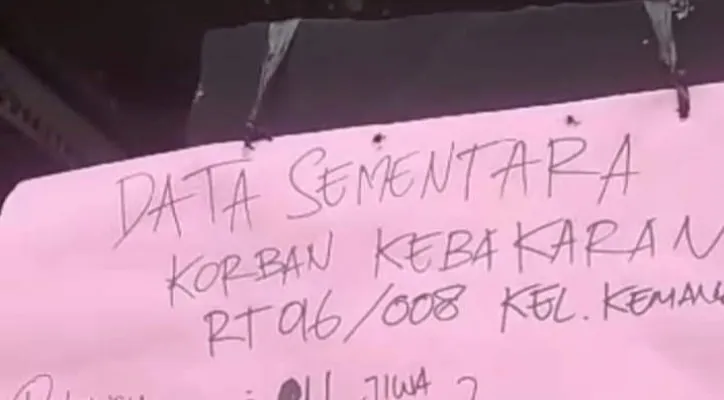 DATA SEMENTARA
KORBAN KEBAKARAN
RT 06/008 KEL. KEMANG
JIWA